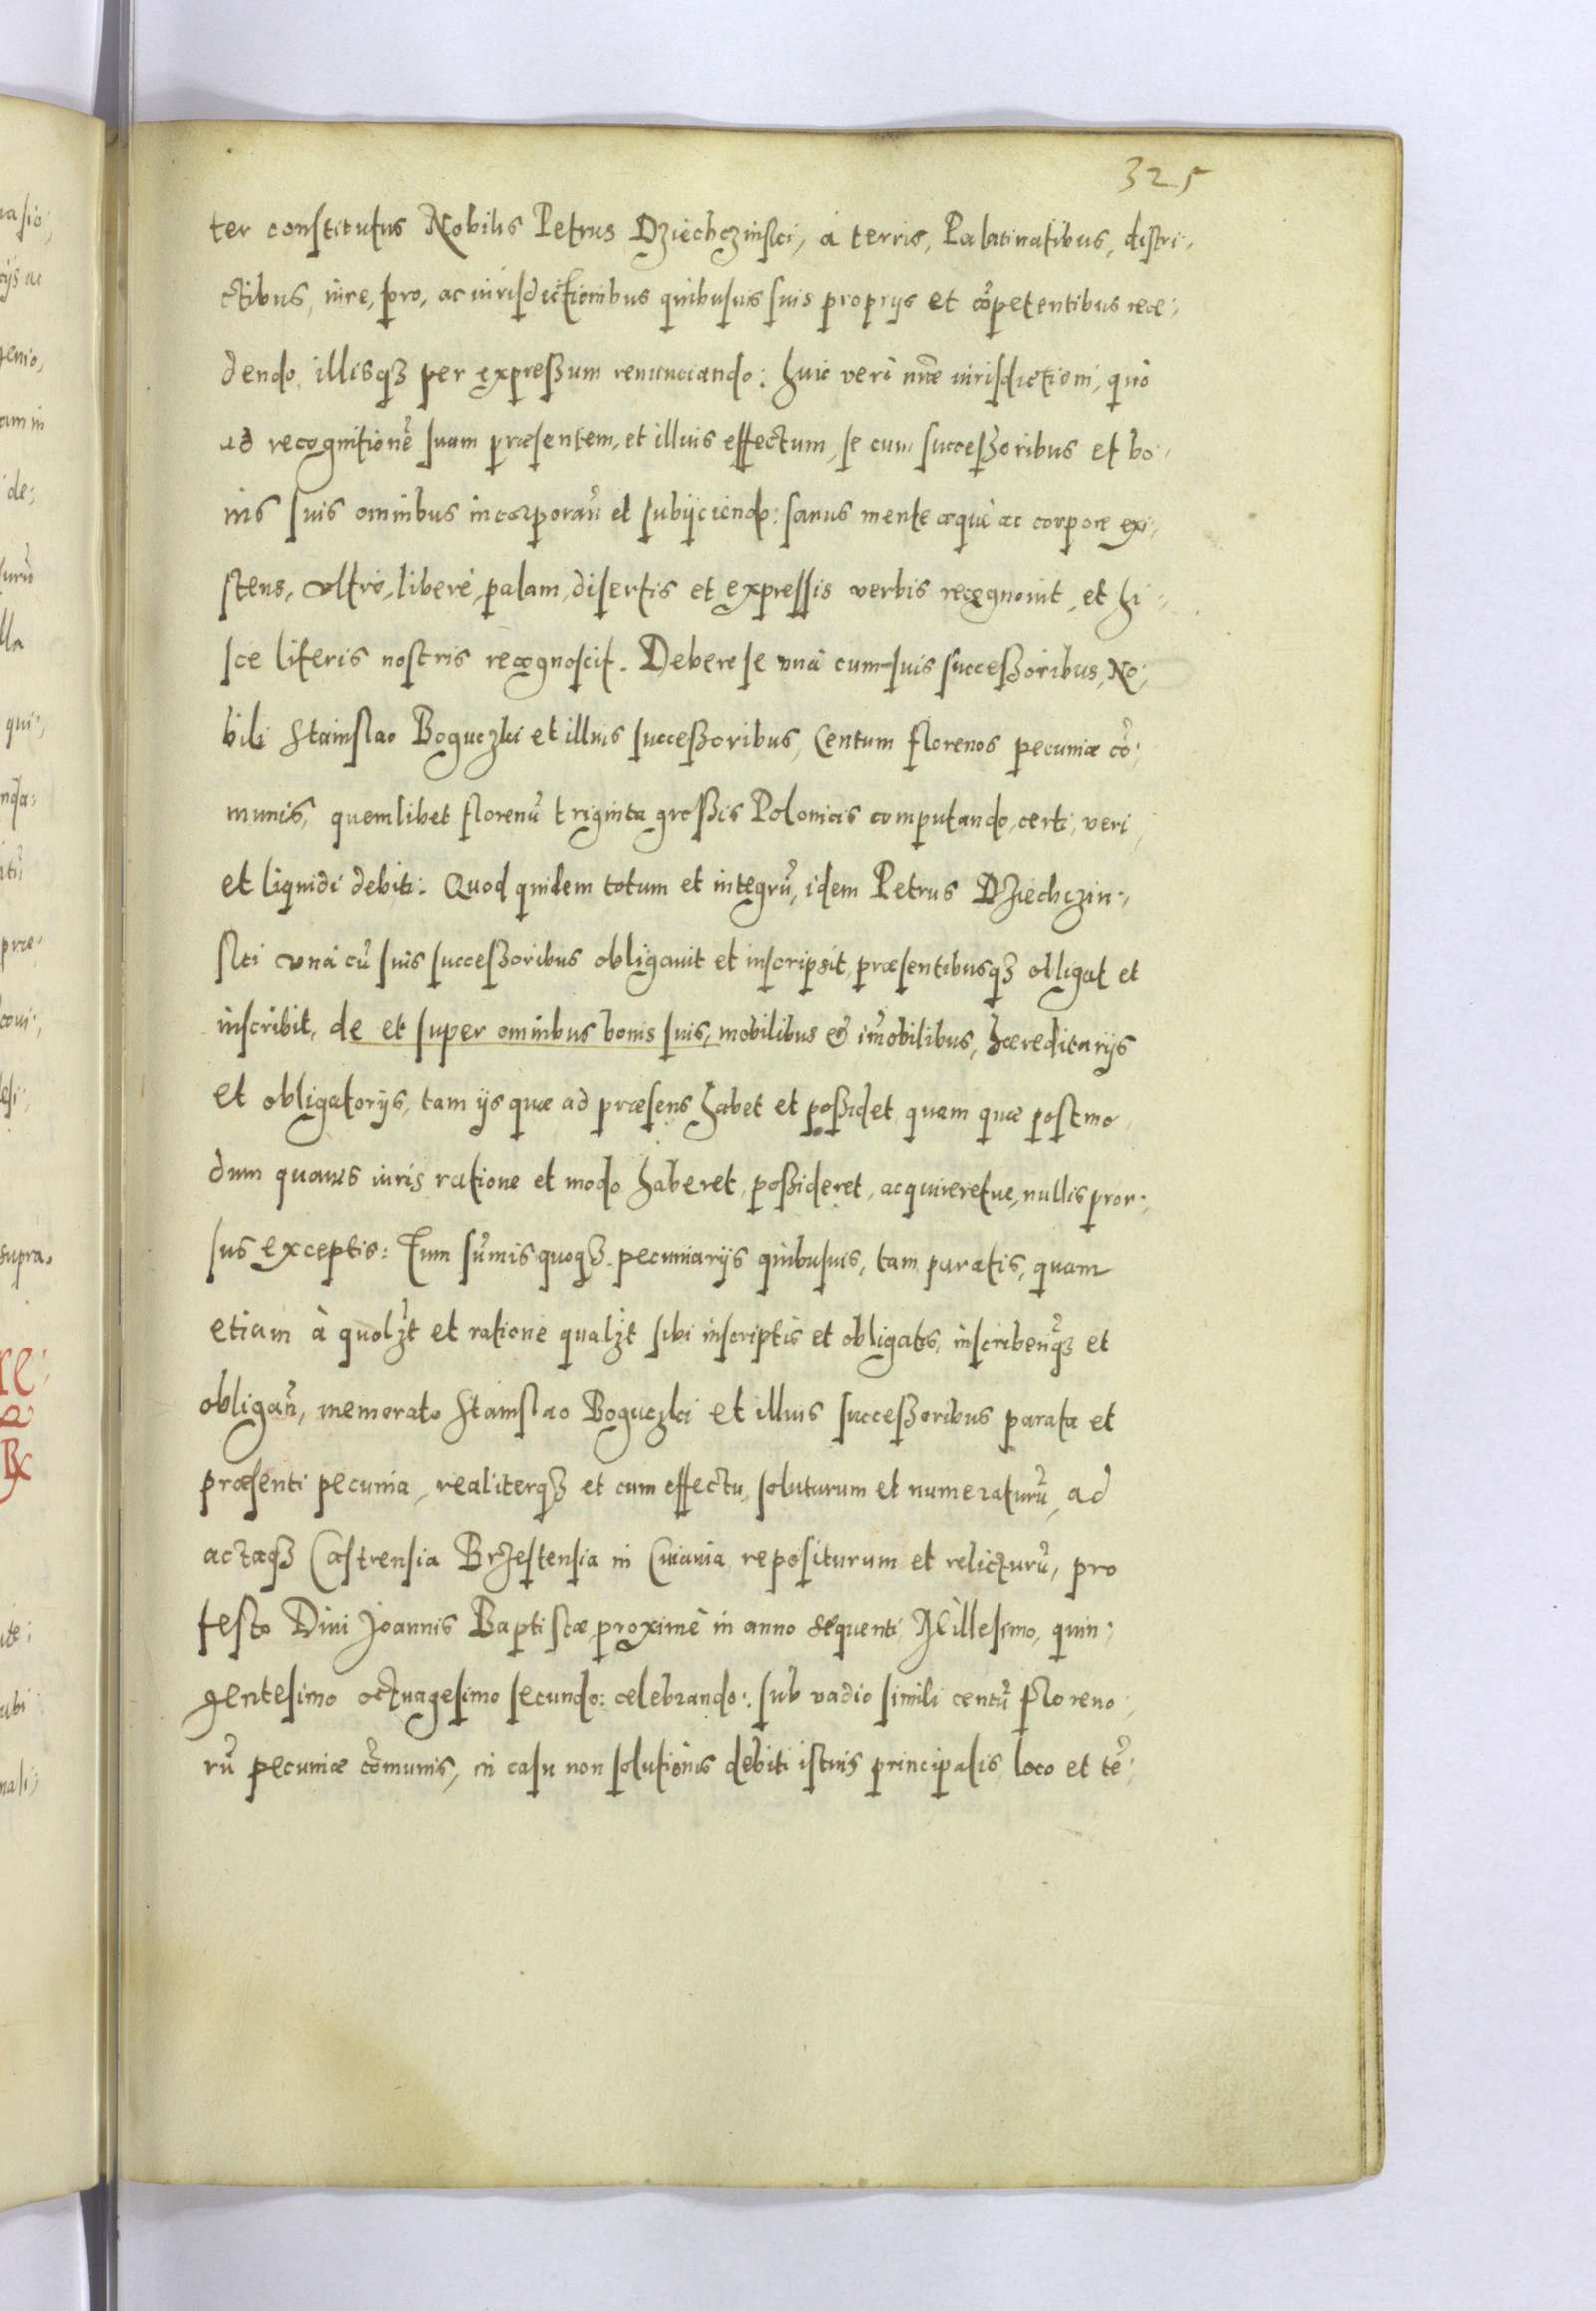 325
ter constitutus Nobilis Petrus Dziechczinsci, à terris, Palatinatibus, distri:,
ctibus, iure, foro, ac iurisdictionibus quibusuis suis proprijs et cõpetentibus rece:,
dendo, illisqȝ per expreßum renunciando: huic verò nr̃æ iurisdictioni, quò
ad recognitionẽ suam præsentem, et illius effectum, se cum succeßoribus et bo:
nis suis omnibus incorporan̄ et subijciendo: sanus mente æquè ac corpore exi:,
stens, vltrò, liberè, palam, disertis et expressis verbis recognouit, et hi:,
sce literis nostris recognoscit. Debere se vnà cum suis succeßoribus, No:,
bili Stanislao Boguczki et illius succeßoribus, Centum florenos pecuniæ cõ:
munis, quemlibet florenũ triginta großis Polonicis computando, certi, veri,
et liquidi debiti: Quod quidem totum et integrũ, idem Petrus Dziechczin:,
sci vnà cũ suis succeßoribus obligauit et inscripsit, præsentibusqȝ obligat et
inscribit, de et super omnibus bonis suis, mobilibus & im̃obilibus, hæreditarijs
et obligatorijs, tam ijs quæ ad præsens habet et poßidet, quam quæ postmo,
dum quouis iuris ratione et modo haberet, poßideret, acquireretue, nullis pror:,
sus exceptis: Tum sũmis quoqȝ pecuniarijs quibusuis, tam paratis, quam
etiam à quolȝt et ratione qualȝt sibi inscriptis et obligatis, inscribenq̃ȝ et
obligan̄, memorato Stanislao Boguczki et illius succeßoribus parata et
præsenti pecunia, realiterqȝ et cum effectu, soluturum et numeraturũ, ad
actaqȝ Castrensia Brzestensia in Cuiauia repositurum et relicturũ, pro
festo Diui Joannis Baptistæ, proximè in anno sequenti Millesimo, quin:
gentesimo octuagesimo secundo: celebrando: sub vadio simili centũ floreno:,
rũ pecuniæ cõmunis, in casu non solutionis debiti istius principalis, loco et tẽ:,